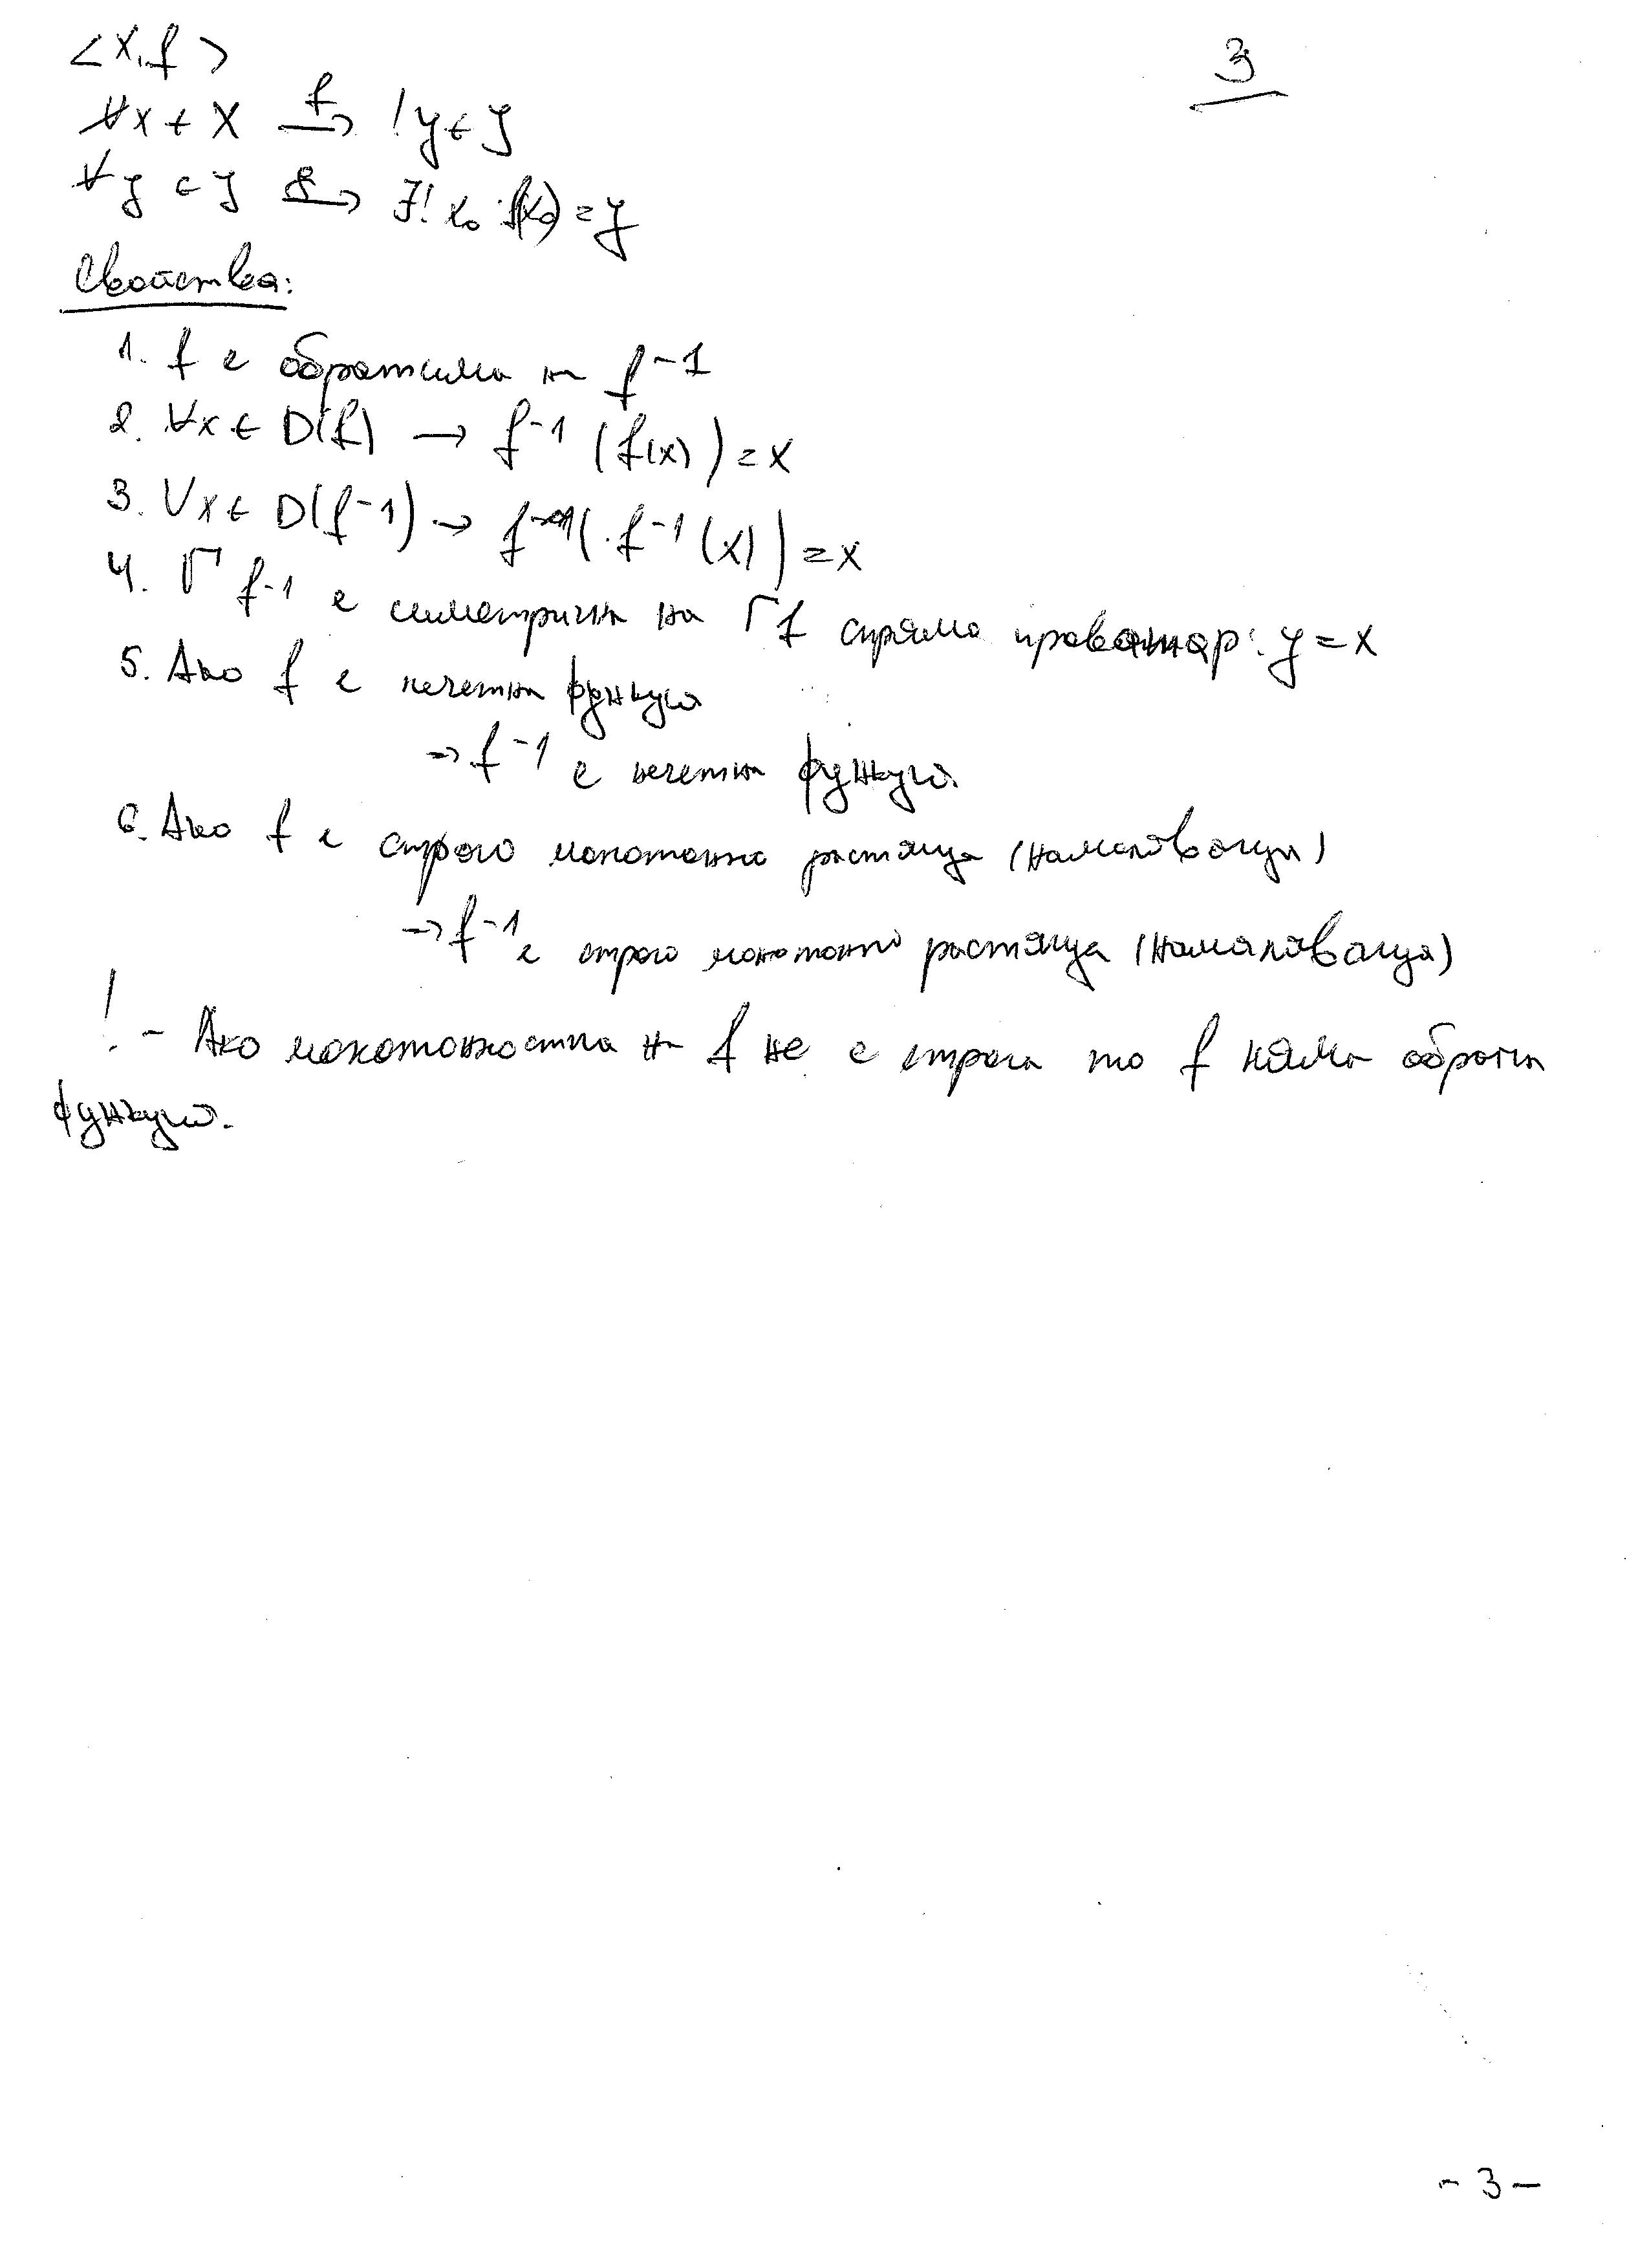 <X, f>
3
∀x ∈ X →(f) !y ∈ Y
∀y ∈ Y → ∃! x₀: f(x₀) = y
Свойства:
1. f е обратима на f⁻¹
2. ∀x ∈ D(f) → f⁻¹(f(x)) = x
3. ∀x ∈ D(f⁻¹) → f(f⁻¹(x)) = x
4. Г f⁻¹ е симетрична на Г f спрямо правата р: y = x
5. Ако f е нечетна функция
→ f⁻¹ е нечетна функция.
6. Ако f е строго монотонно растяща (намаляваща)
→ f⁻¹ е строго монотонно растяща (намаляваща)
! - Ако монотонността на f не е строга то f няма обратна
функция.
- 3 -